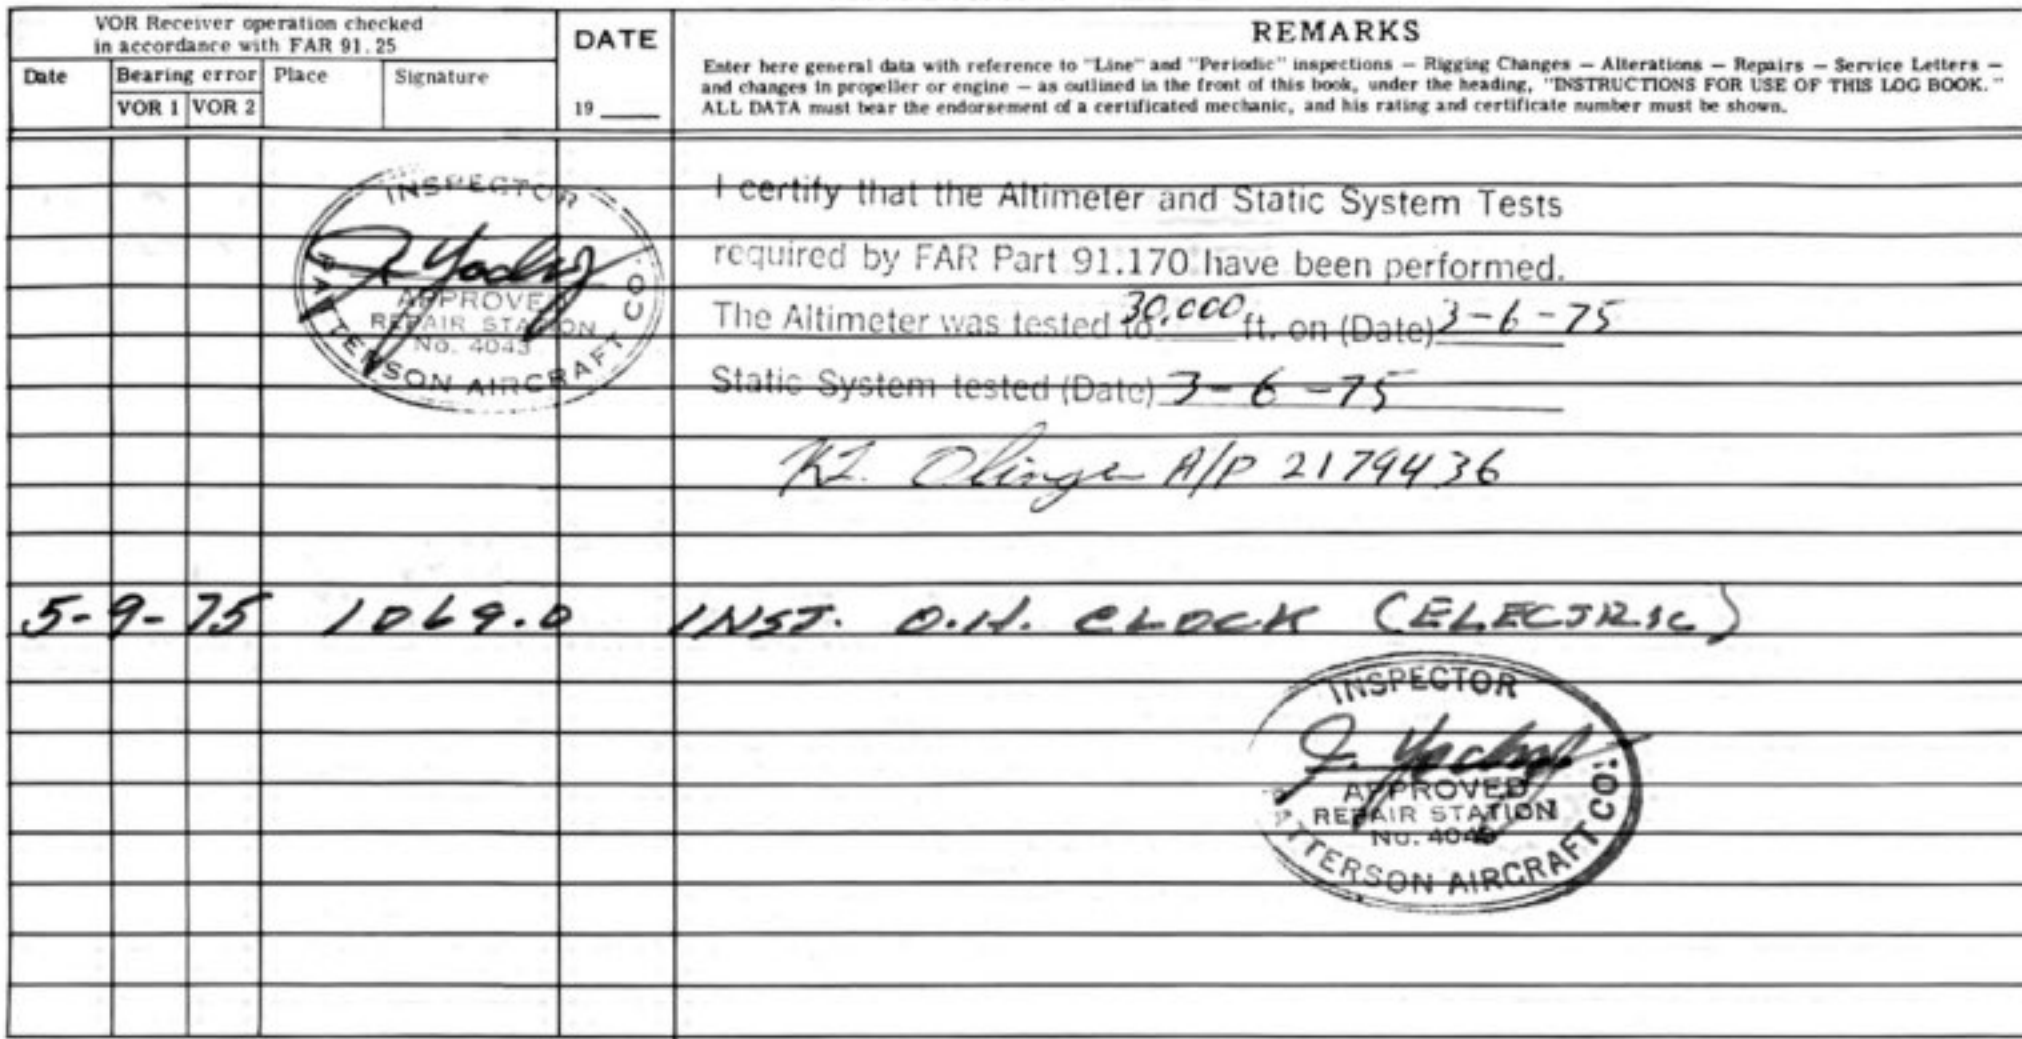 VOR Receiver operation checked
in accordance with FAR 91.25
Date
Bearing error
VOR 1 VOR 2
Place
Signature
DATE
19
REMARKS
Enter here general data with reference to "Line" and "Periodic" inspections — Rigging Changes — Alterations — Repairs — Service Letters —
and changes in propeller or engine — as outlined in the front of this book, under the heading, "INSTRUCTIONS FOR USE OF THIS LOG BOOK."
ALL DATA must bear the endorsement of a certificated mechanic, and his rating and certificate number must be shown.
INSPECTOR
APPROVED
REPAIR STATION
No. 4043
PATTERSON AIRCRAFT CO.
I certify that the Altimeter and Static System Tests
required by FAR Part 91.170 have been performed.
The Altimeter was tested to 30,000 ft. on (Date) 3-6-75
Static System tested (Date) 3-6-75
Olinger A/P 2179436
5-9-75 1069.0 INST. O.H. CLOCK (ELECTRIC)
INSPECTOR
APPROVED
REPAIR STATION
No. 4043
PATTERSON AIRCRAFT CO.